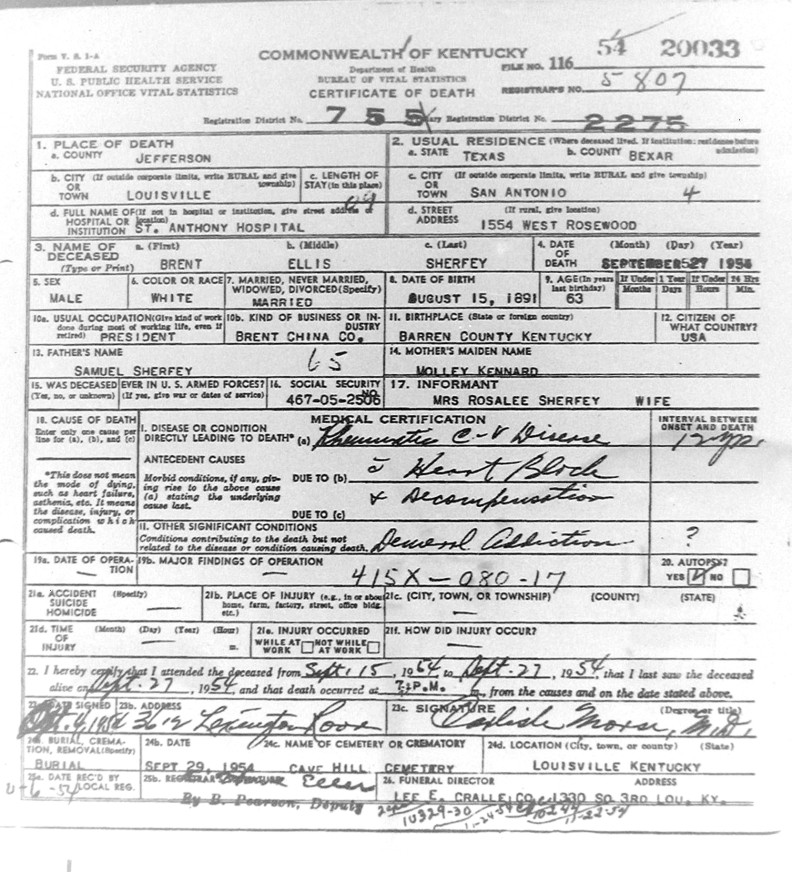 Form V. S. 1-A
FEDERAL SECURITY AGENCY
U. S. PUBLIC HEALTH SERVICE
NATIONAL OFFICE VITAL STATISTICS
COMMONWEALTH OF KENTUCKY
Department of Health
BUREAU OF VITAL STATISTICS
CERTIFICATE OF DEATH
FILE NO. 116 54 20033
REGISTRAR'S NO. 5807
Registration District No. 755 Registration District No. 2275
1. PLACE OF DEATH
a. COUNTY JEFFERSON
2. USUAL RESIDENCE (Where deceased lived. If institution: residence before admission)
a. STATE TEXAS b. COUNTY BEXAR
b. CITY (If outside corporate limits, write RURAL and give township)
OR TOWN LOUISVILLE
c. LENGTH OF STAY (in this place)
c. CITY (If outside corporate limits, write RURAL and give township)
OR TOWN SAN ANTONIO 4
d. FULL NAME OF (If not in hospital or institution, give street address or location)
HOSPITAL OR INSTITUTION ST. ANTHONY HOSPITAL
d. STREET ADDRESS (If rural, give location)
1554 WEST ROSEWOOD
3. NAME OF DECEASED (Type or Print)
a. (First) b. (Middle) c. (Last)
BRENT ELLIS SHERFEY
4. DATE OF DEATH (Month) (Day) (Year)
SEPTEMBER 27 1954
5. SEX
MALE
6. COLOR OR RACE
WHITE
7. MARRIED, NEVER MARRIED, WIDOWED, DIVORCED (Specify)
MARRIED
8. DATE OF BIRTH
AUGUST 15, 1891
9. AGE (In years last birthday)
63
If Under 1 Year Months Days
If Under 24 Hrs Hours Min.
10a. USUAL OCCUPATION (Give kind of work done during most of working life, even if retired)
PRESIDENT
10b. KIND OF BUSINESS OR INDUSTRY
BRENT CHINA CO.
11. BIRTHPLACE (State or foreign country)
BARREN COUNTY KENTUCKY
12. CITIZEN OF WHAT COUNTRY?
USA
13. FATHER'S NAME
SAMUEL SHERFEY
65
14. MOTHER'S MAIDEN NAME
MOLLEY KENNARD
15. WAS DECEASED EVER IN U. S. ARMED FORCES?
(Yes, no, or unknown) (If yes, give war or dates of service)
16. SOCIAL SECURITY NO.
467-05-2506
17. INFORMANT
MRS ROSALEE SHERFEY WIFE
18. CAUSE OF DEATH
Enter only one cause per line for (a), (b), and (c)
*This does not mean the mode of dying, such as heart failure, asthenia, etc. It means the disease, injury, or complication which caused death.
MEDICAL CERTIFICATION
INTERVAL BETWEEN ONSET AND DEATH
I. DISEASE OR CONDITION DIRECTLY LEADING TO DEATH* (a) Rheumatic C-V Disease
12 yrs.
ANTECEDENT CAUSES
Morbid conditions, if any, giving rise to the above cause (a) stating the underlying cause last.
DUE TO (b) c̄ Heart Block
& Decompensation
DUE TO (c)
II. OTHER SIGNIFICANT CONDITIONS
Conditions contributing to the death but not related to the disease or condition causing death.
Demerol Addiction ?
19a. DATE OF OPERATION
—
19b. MAJOR FINDINGS OF OPERATION
—
415X—080-17
20. AUTOPSY?
YES ☑ NO ☐
21a. ACCIDENT SUICIDE HOMICIDE (Specify)
—
21b. PLACE OF INJURY (e.g., in or about home, farm, factory, street, office bldg. etc.)
21c. (CITY, TOWN, OR TOWNSHIP) (COUNTY) (STATE)
—
21d. TIME OF INJURY (Month) (Day) (Year) (Hour) m.
—
21e. INJURY OCCURRED
WHILE AT WORK ☐ NOT WHILE AT WORK ☐
21f. HOW DID INJURY OCCUR?
—
22. I hereby certify that I attended the deceased from Sept. 15, 1954 to Sept. 27, 1954, that I last saw the deceased
alive on Sept. 27, 1954 and that death occurred at P.M. m., from the causes and on the date stated above.
23a. DATE SIGNED
Oct. 4, 1954
23b. ADDRESS
3612 Lexington Road
23c. SIGNATURE (Degree or title)
Carlisle Morse, M.D.
24a. BURIAL, CREMATION, REMOVAL (Specify)
BURIAL
24b. DATE
SEPT 29, 1954
24c. NAME OF CEMETERY OR CREMATORY
CAVE HILL CEMETERY
24d. LOCATION (City, town, or county) (State)
LOUISVILLE KENTUCKY
25a. DATE REC'D BY LOCAL REG.
25b.
By B. Pearson, Deputy
26. FUNERAL DIRECTOR ADDRESS
LEE E. CRALLE CO. 1330 SO 3RD LOU. KY.